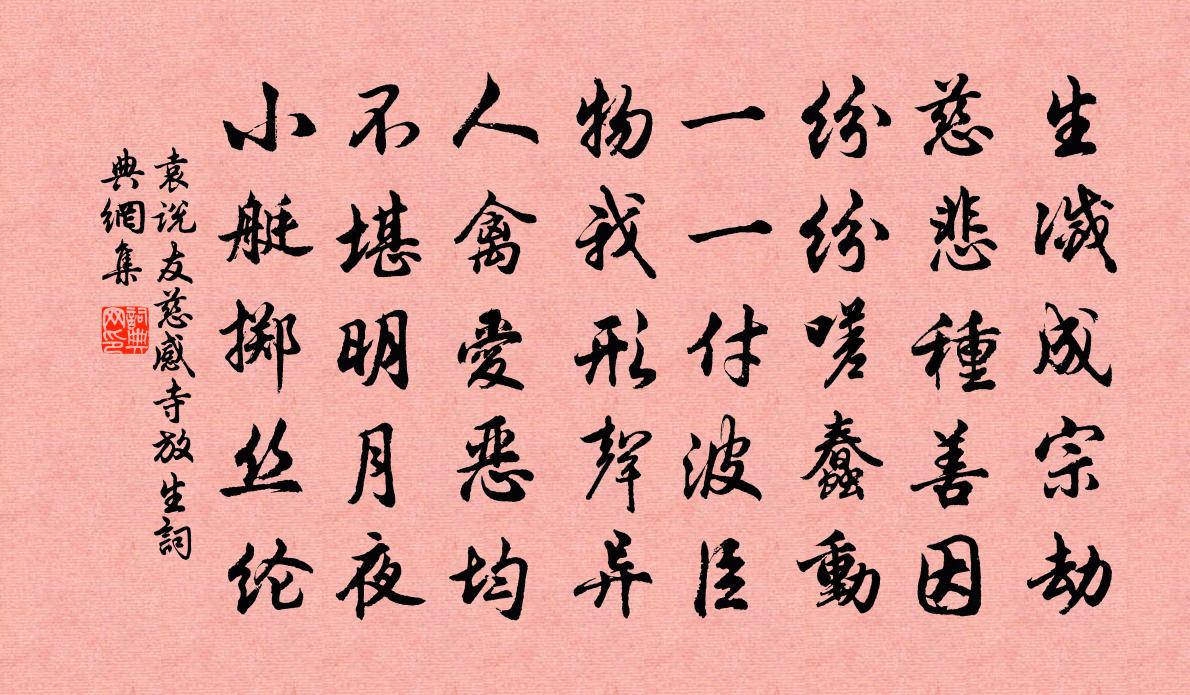 生滅成宗劫
慈悲種善因
紛紛嗟蠢動
一一付波臣
物我形聲异
人禽愛惡均
不堪明月夜
小艇掷丝纶
袁说友慈感寺放生詞
典網集
詞典
网印